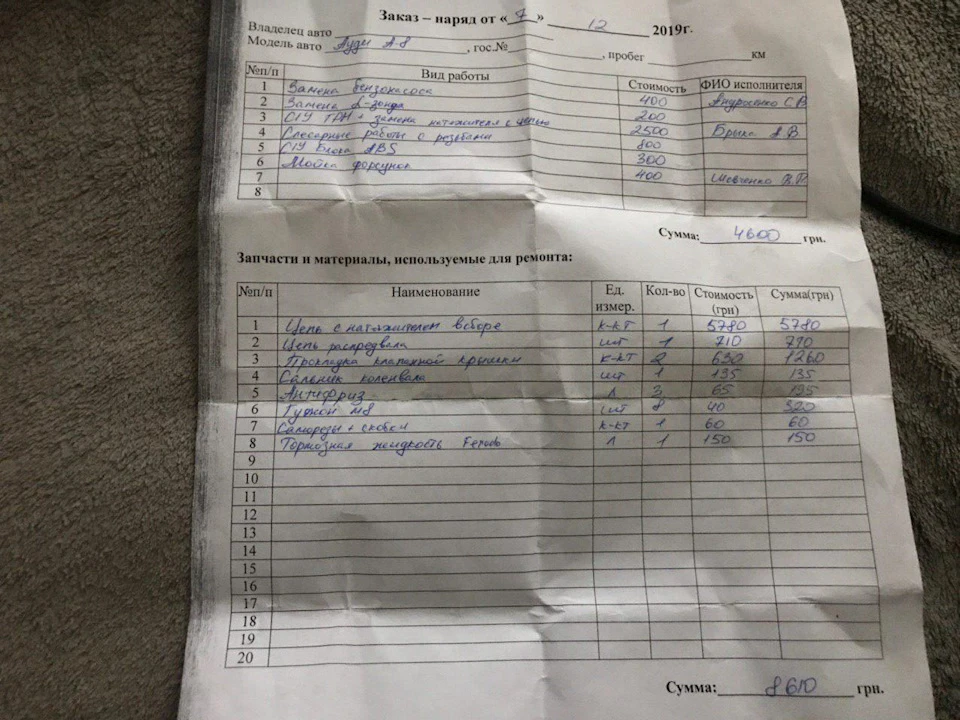 Заказ – наряд от «7» 12 2019г.
Владелец авто
Модель авто Ауди А-8, гос.№ , пробег км
№п/п Вид работы Стоимость ФИО исполнителя
1 Замена бензонасоса 400 Андросенко С.В.
2 Замена λ-зонда 200
3 С/У ГРМ + замена натяжителя с цепью 2500 Брыка А.В.
4 Слесарные работы с резьбами 800
5 С/У блока ABS 300
6 Мойка форсунок 400 Шевченко
7
8
Сумма: 4600 грн.
Запчасти и материалы, используемые для ремонта:
№п/п Наименование Ед. измер. Кол-во Стоимость (грн) Сумма(грн)
1 Цепь с натяжителем в сборе к-кт 1 5780 5780
2 Цепь распредвала шт 1 710 710
3 Прокладка клапанной крышки к-кт 2 630 1260
4 Сальник коленвала шт 1 135 135
5 Антифриз л 3 65 195
6 Гужон М8 шт 8 40 320
7 Саморезы + скобки к-кт 1 60 60
8 Тормозная жидкость Ferodo л 1 150 150
9
10
11
12
13
14
15
16
17
18
19
20
Сумма: 8610 грн.